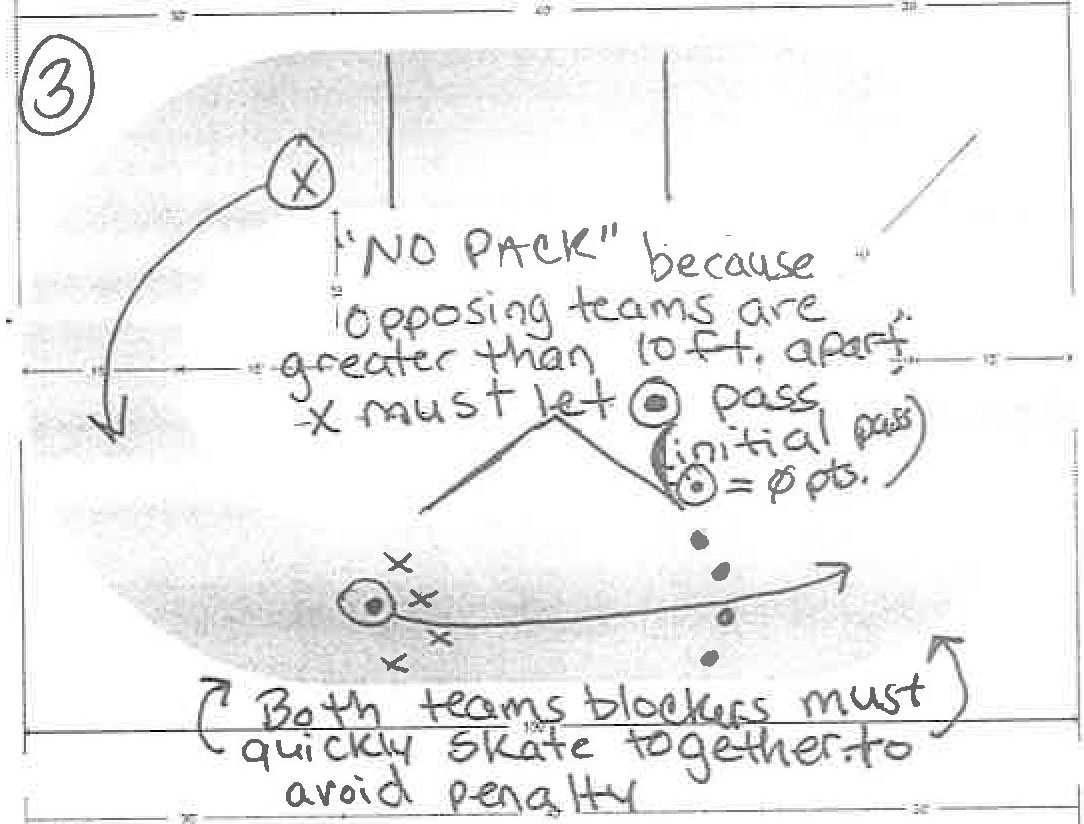 3
X
"NO PACK" because
opposing teams are
greater than 10 ft. apart.
-X must let pass
(initial pass)
= Ø pts.
x
x
x
x
Both teams blockers must
quickly skate together to
avoid penalty